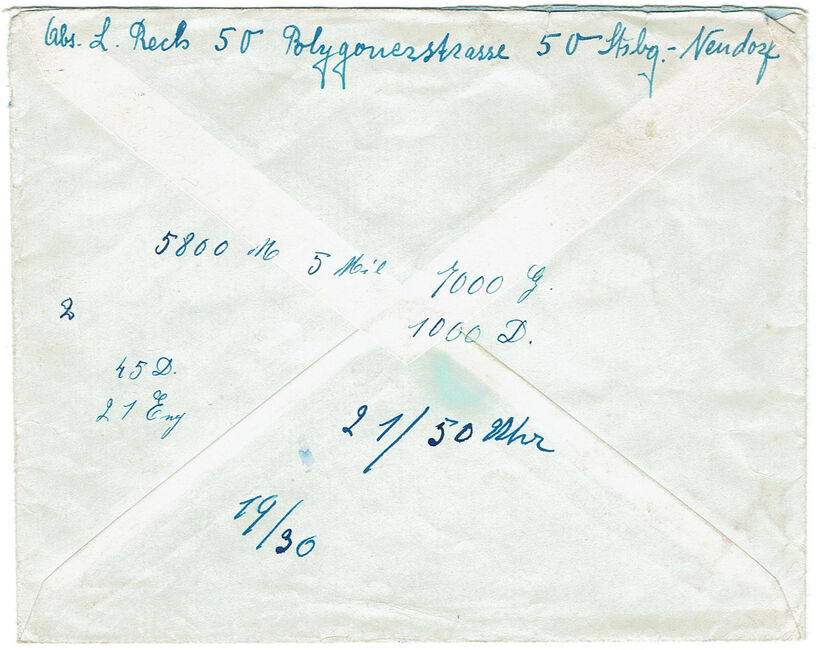 Abs. L. Rech 50 Polygonerstrasse 50 Strbg.-Neudorf
5800 M 5 Mil 7000 G.
2 1000 D.
45 D.
21 Eng
21/50 Uhr
19/30